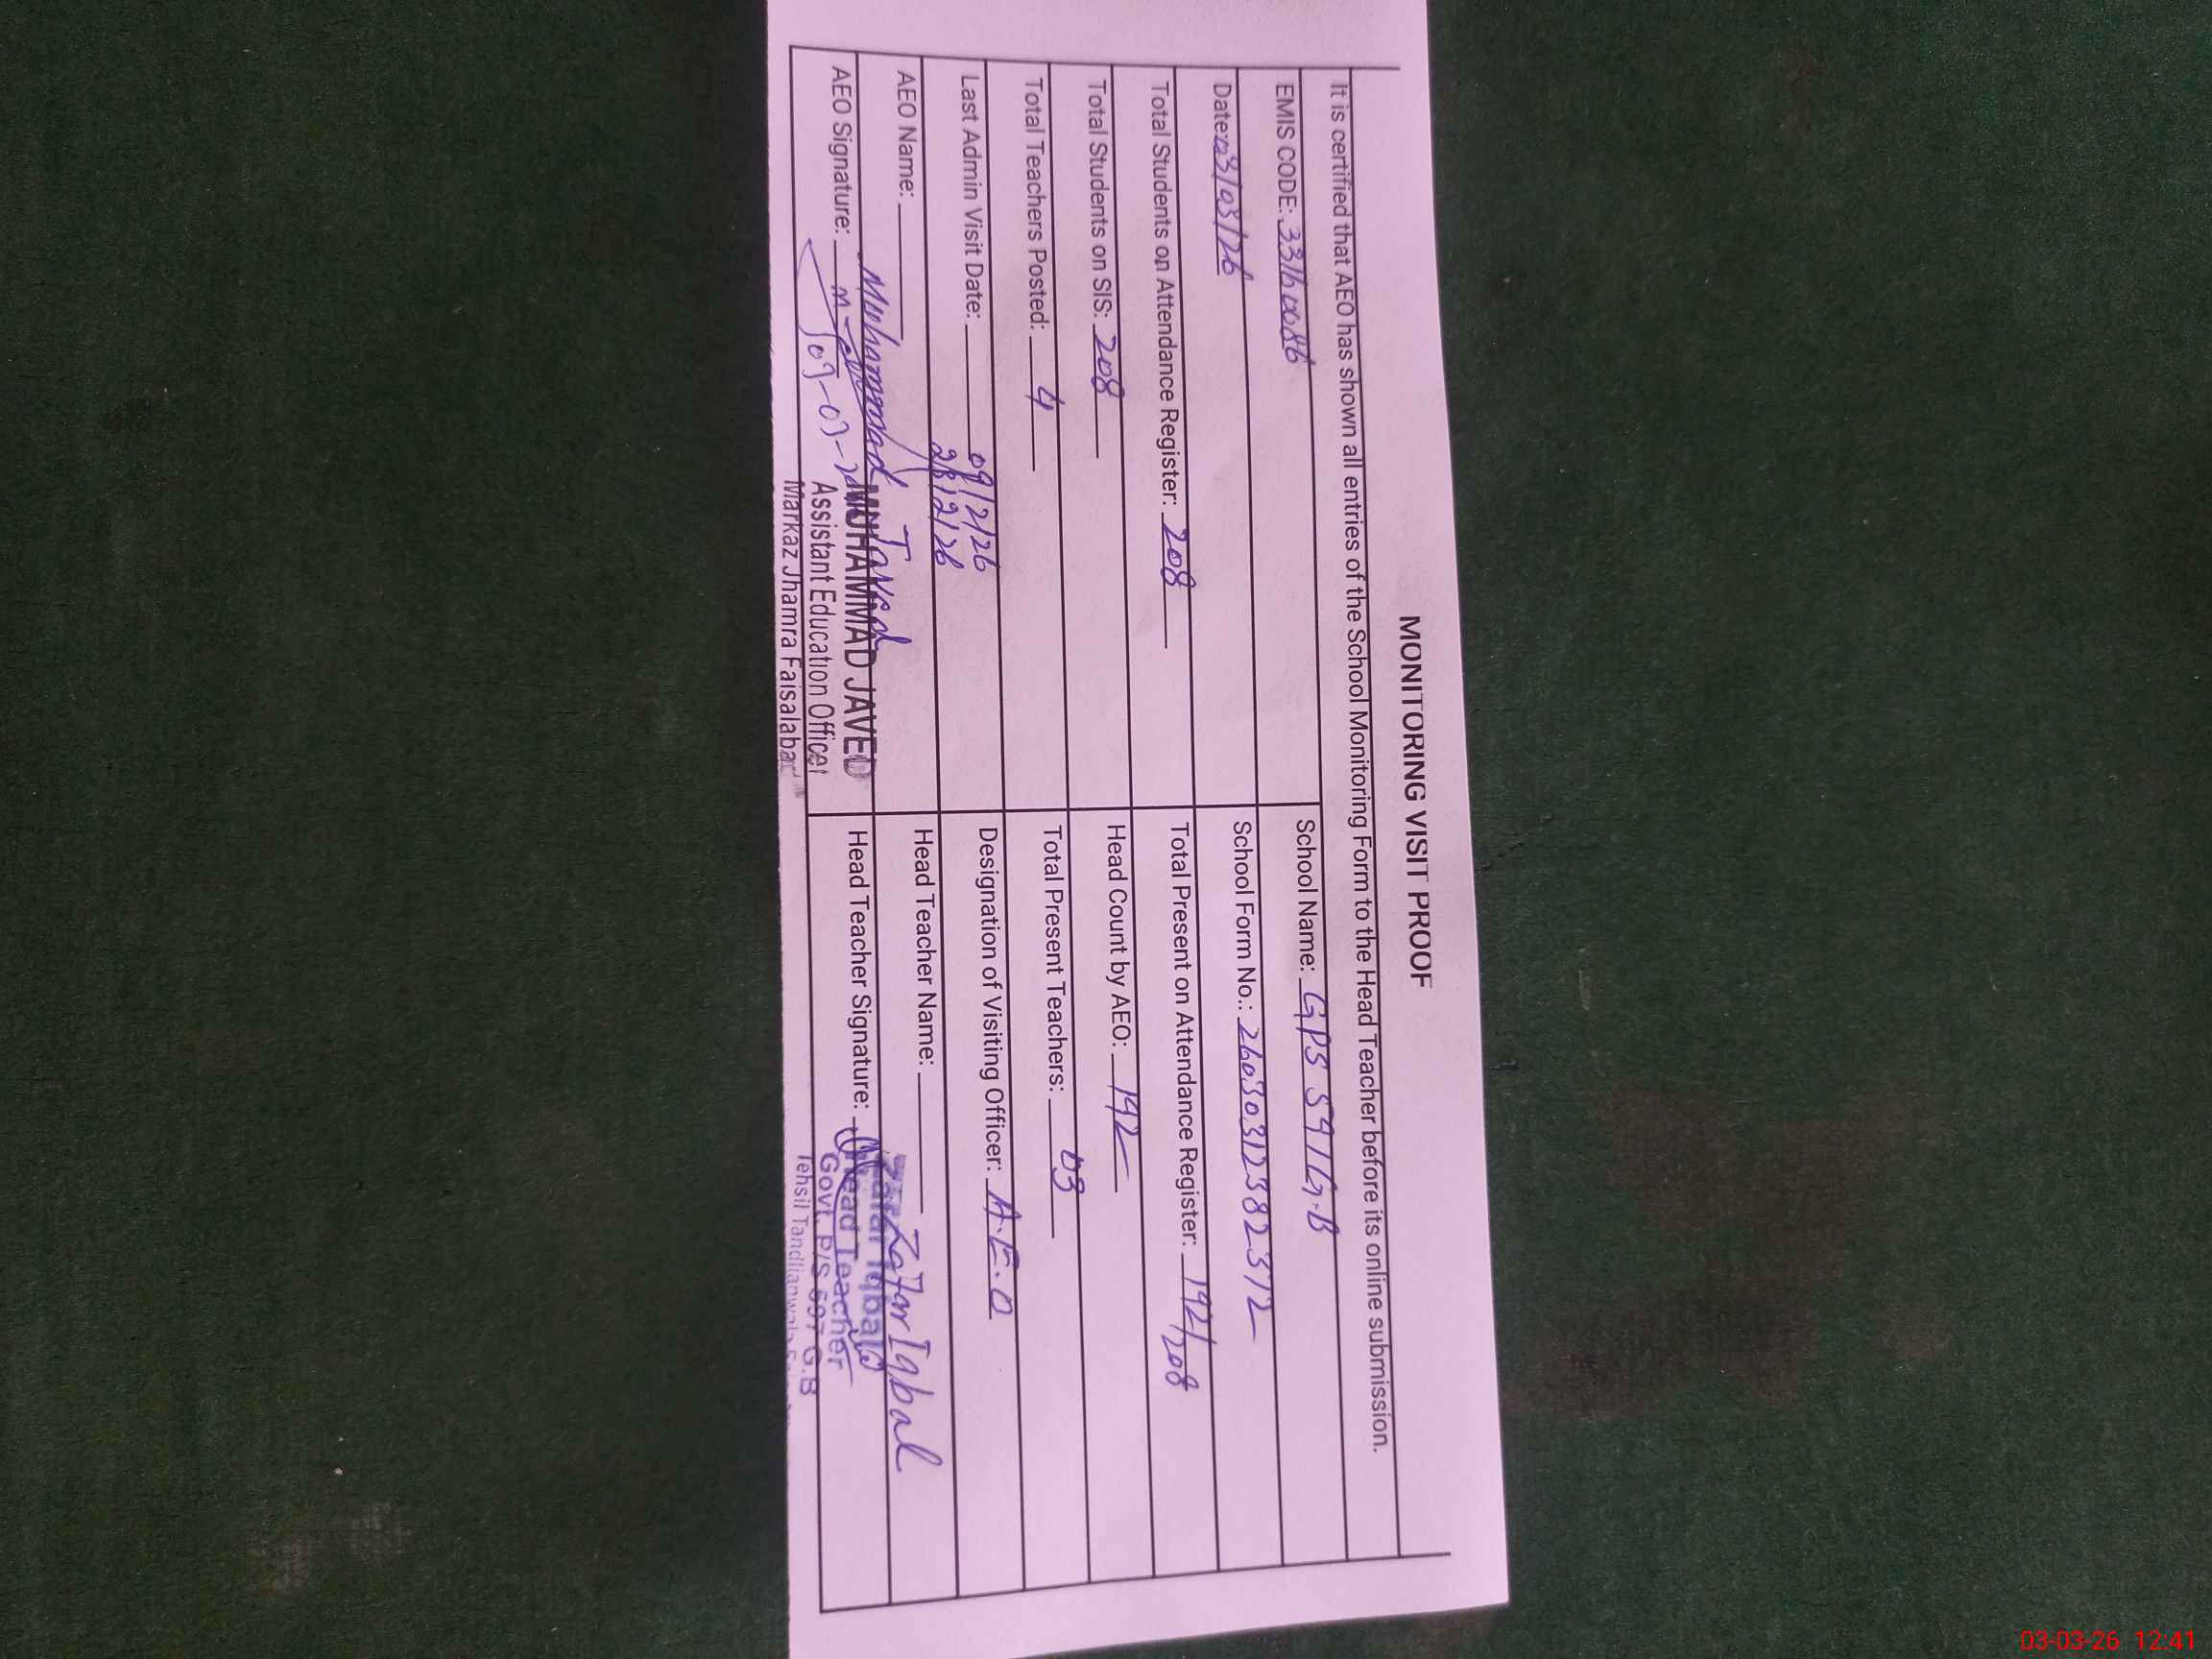 MONITORING VISIT PROOF
It is certified that AEO has shown all entries of the School Monitoring Form to the Head Teacher before its online submission.
EMIS CODE: 33160086
School Name: GPS 597 G.B
Date: 03/03/26
School Form No.: 26030312382312
Total Students on Attendance Register: 208
Total Present on Attendance Register: 192/208
Total Students on SIS: 208
Head Count by AEO: 192
Total Teachers Posted: 4
Total Present Teachers: 03
Last Admin Visit Date: 09/2/26
28/2/26
Designation of Visiting Officer: A.E.O
AEO Name: Muhammad Javed
Head Teacher Name: Zafar Iqbal
AEO Signature:
MUHAMMAD JAVED
Assistant Education Officer
Markaz Jhamra Faisalabad
Head Teacher Signature:
Zafar Iqbal
Head Teacher
Govt. P/S 597 G.B
Tehsil Tandlianwala
03-03-26 12:41